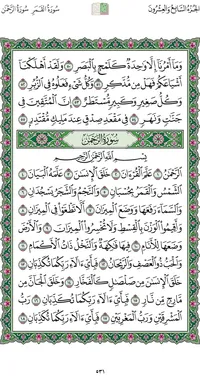 الجزء السابع والعشرون سورة القمر سورة الرحمن
وَمَا أَمْرُنَا إِلَّا وَٰحِدَةٌ كَلَمْحٍ بِالْبَصَرِ ۝٥٠ وَلَقَدْ أَهْلَكْنَا
أَشْيَاعَكُمْ فَهَلْ مِن مُّدَّكِرٍ ۝٥١ وَكُلُّ شَيْءٍ فَعَلُوهُ فِي الزُّبُرِ ۝٥٢
وَكُلُّ صَغِيرٍ وَكَبِيرٍ مُّسْتَطَرٌ ۝٥٣ إِنَّ الْمُتَّقِينَ فِي
جَنَّٰتٍ وَنَهَرٍ ۝٥٤ فِي مَقْعَدِ صِدْقٍ عِندَ مَلِيكٍ مُّقْتَدِرٍ ۝٥٥
سُورَةُ الرَّحْمَٰن
بِسْمِ اللَّهِ الرَّحْمَٰنِ الرَّحِيمِ
الرَّحْمَٰنُ ۝١ عَلَّمَ الْقُرْءَانَ ۝٢ خَلَقَ الْإِنسَٰنَ ۝٣ عَلَّمَهُ الْبَيَانَ ۝٤
الشَّمْسُ وَالْقَمَرُ بِحُسْبَانٍ ۝٥ وَالنَّجْمُ وَالشَّجَرُ يَسْجُدَانِ ۝٦
وَالسَّمَاءَ رَفَعَهَا وَوَضَعَ الْمِيزَانَ ۝٧ أَلَّا تَطْغَوْا فِي الْمِيزَانِ ۝٨
وَأَقِيمُوا الْوَزْنَ بِالْقِسْطِ وَلَا تُخْسِرُوا الْمِيزَانَ ۝٩ وَالْأَرْضَ
وَضَعَهَا لِلْأَنَامِ ۝١٠ فِيهَا فَٰكِهَةٌ وَالنَّخْلُ ذَاتُ الْأَكْمَامِ ۝١١
وَالْحَبُّ ذُو الْعَصْفِ وَالرَّيْحَانُ ۝١٢ فَبِأَيِّ ءَالَاءِ رَبِّكُمَا تُكَذِّبَانِ ۝١٣
خَلَقَ الْإِنسَٰنَ مِن صَلْصَٰلٍ كَالْفَخَّارِ ۝١٤ وَخَلَقَ الْجَانَّ مِن
مَّارِجٍ مِّن نَّارٍ ۝١٥ فَبِأَيِّ ءَالَاءِ رَبِّكُمَا تُكَذِّبَانِ ۝١٦ رَبُّ
الْمَشْرِقَيْنِ وَرَبُّ الْمَغْرِبَيْنِ ۝١٧ فَبِأَيِّ ءَالَاءِ رَبِّكُمَا تُكَذِّبَانِ ۝١٨
٥٣١